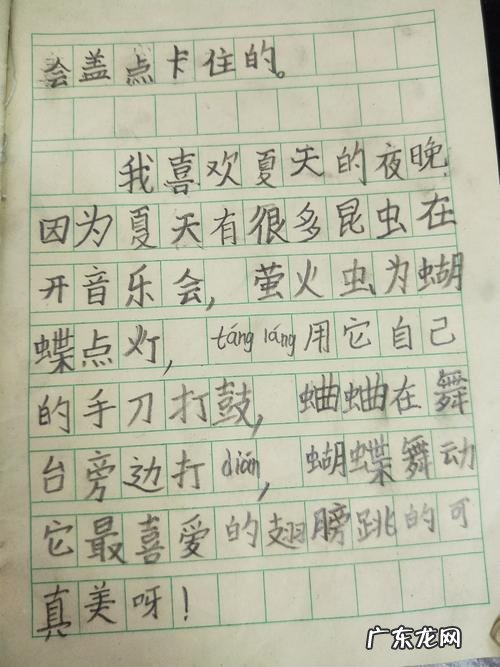 会盖点卡住的。
我喜欢夏天的夜晚,
因为夏天有很多昆虫在
开音乐会,萤火虫为蝴
蝶点灯,táng láng用它自己
的手刀打鼓,蛐蛐在舞
台旁边打diǎn,蝴蝶舞动
它最喜爱的翅膀跳的可
真美呀!
广东龙网